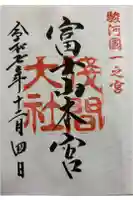 駿河國一之宮
富士本宮
淺間大社
令和七年十二月四日